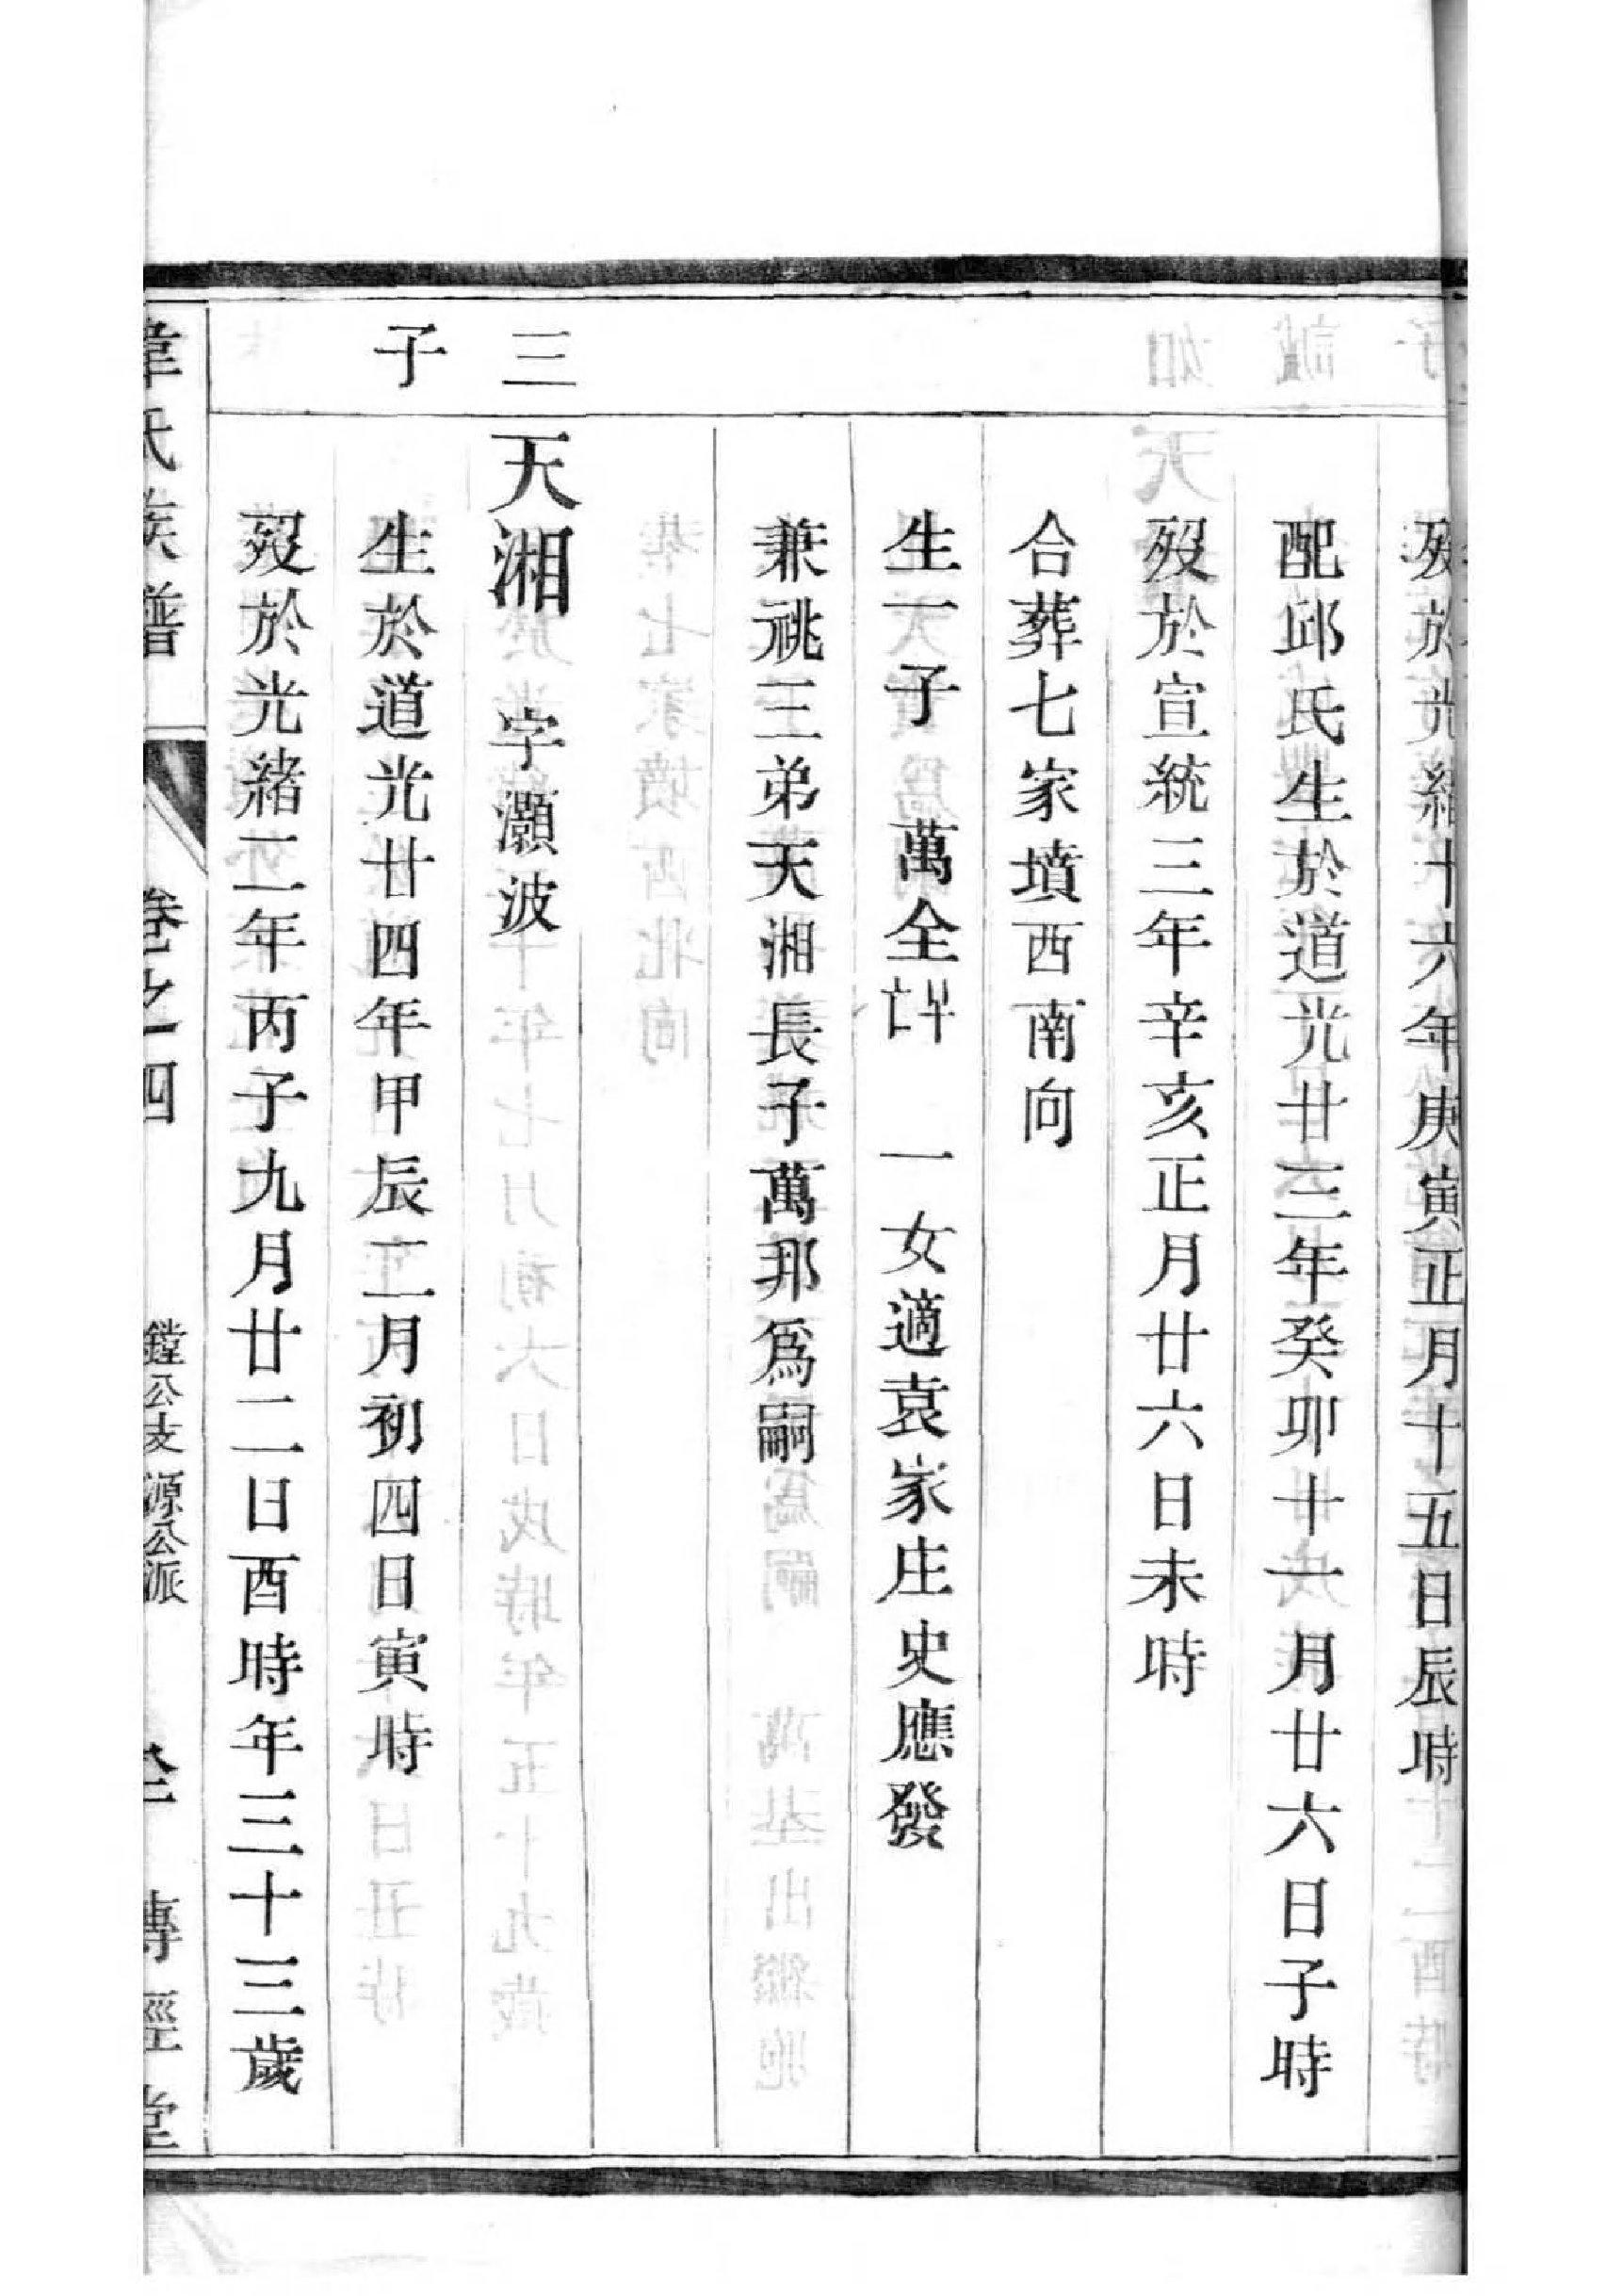 歿於光緒十六年庚寅正月十五日辰時
配邱氏生於道光廿三年癸卯十一月廿六日子時
歿於宣統三年辛亥正月廿六日未時
合葬七家墳西南向
生一子萬全 一女適袁家庄史應發
兼祧三弟天湘長子萬邦爲嗣
三子
天湘 字灝波
生於道光廿四年甲辰二月初四日寅時
歿於光緒二年丙子九月廿二日酉時年三十三歲
韋氏族譜 卷之四 鏜公支源公派 傳經堂